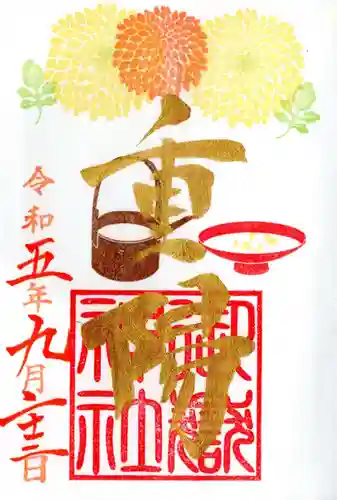 重陽
御嶽
神社
令和五年九月二十三日